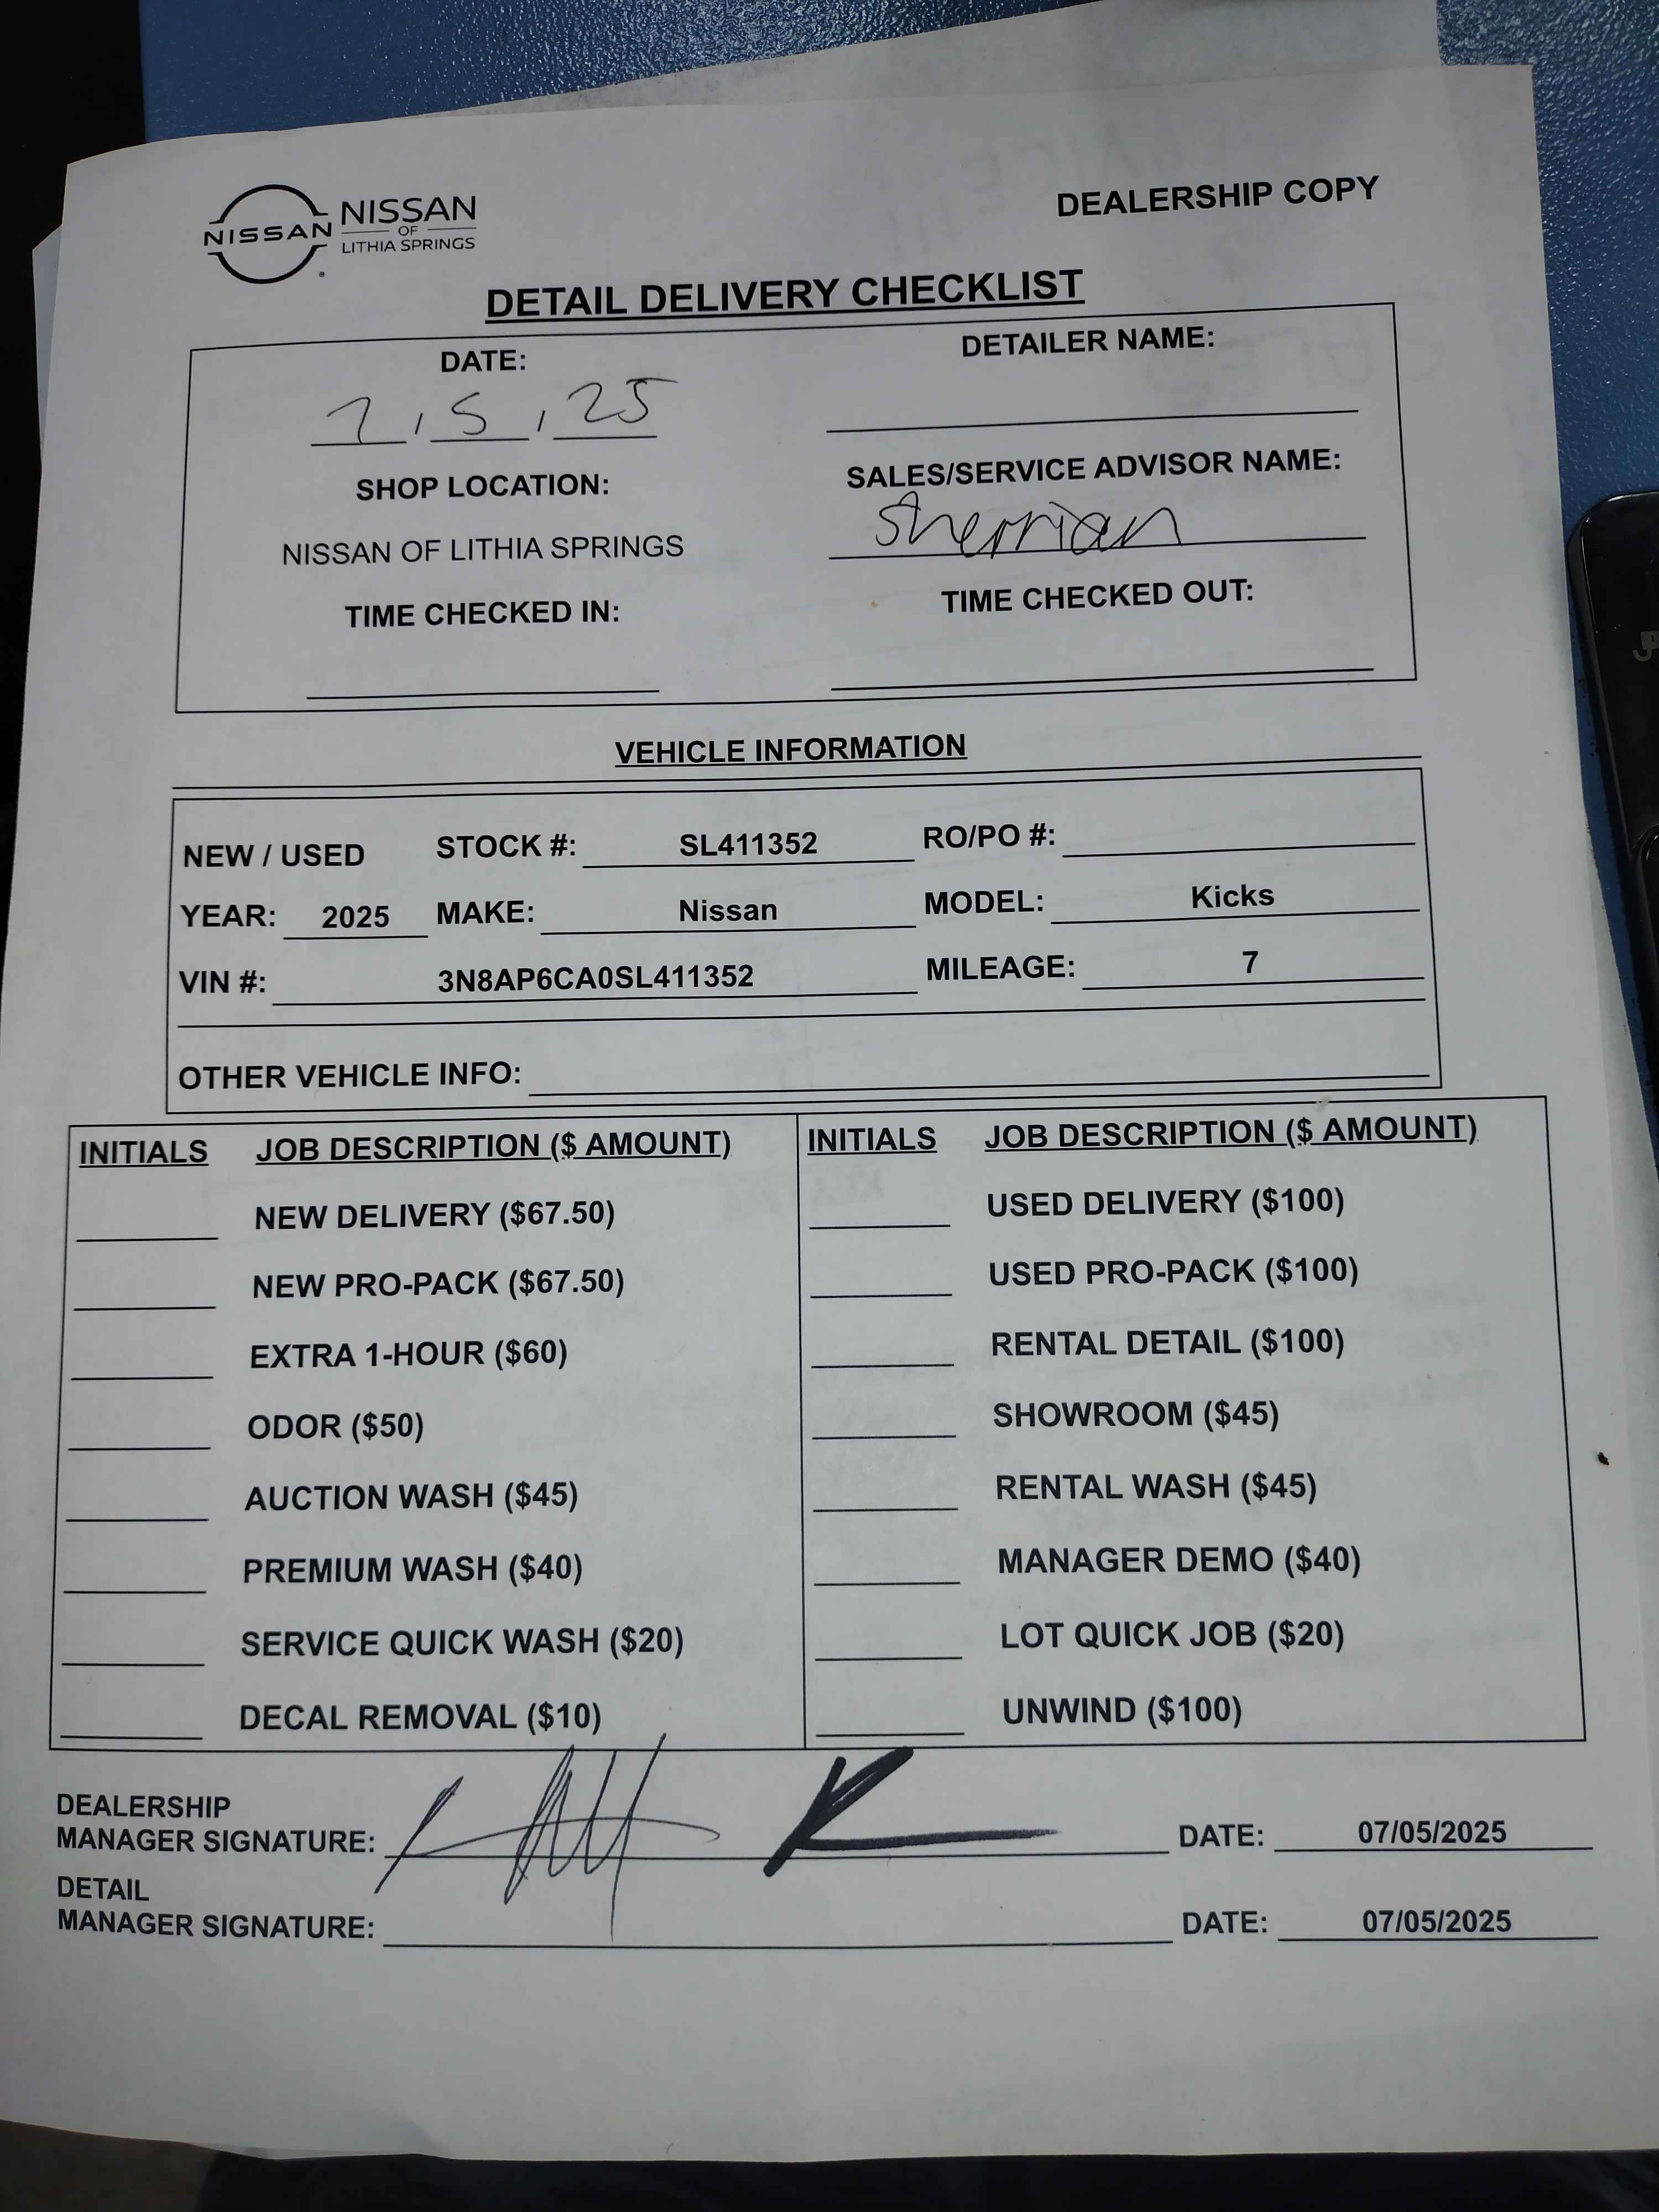 NISSAN
NISSAN
OF
LITHIA SPRINGS
DEALERSHIP COPY
DETAIL DELIVERY CHECKLIST
DATE:
7, 5, 25
DETAILER NAME:
SHOP LOCATION:
NISSAN OF LITHIA SPRINGS
SALES/SERVICE ADVISOR NAME:
Sherrian
TIME CHECKED IN:
TIME CHECKED OUT:
VEHICLE INFORMATION
NEW / USED STOCK #: SL411352 RO/PO #:
YEAR: 2025 MAKE: Nissan MODEL: Kicks
VIN #: 3N8AP6CA0SL411352 MILEAGE: 7
OTHER VEHICLE INFO:
INITIALS JOB DESCRIPTION ($ AMOUNT)
NEW DELIVERY ($67.50)
NEW PRO-PACK ($67.50)
EXTRA 1-HOUR ($60)
ODOR ($50)
AUCTION WASH ($45)
PREMIUM WASH ($40)
SERVICE QUICK WASH ($20)
DECAL REMOVAL ($10)
INITIALS JOB DESCRIPTION ($ AMOUNT)
USED DELIVERY ($100)
USED PRO-PACK ($100)
RENTAL DETAIL ($100)
SHOWROOM ($45)
RENTAL WASH ($45)
MANAGER DEMO ($40)
LOT QUICK JOB ($20)
UNWIND ($100)
DEALERSHIP
MANAGER SIGNATURE: DATE: 07/05/2025
DETAIL
MANAGER SIGNATURE: DATE: 07/05/2025